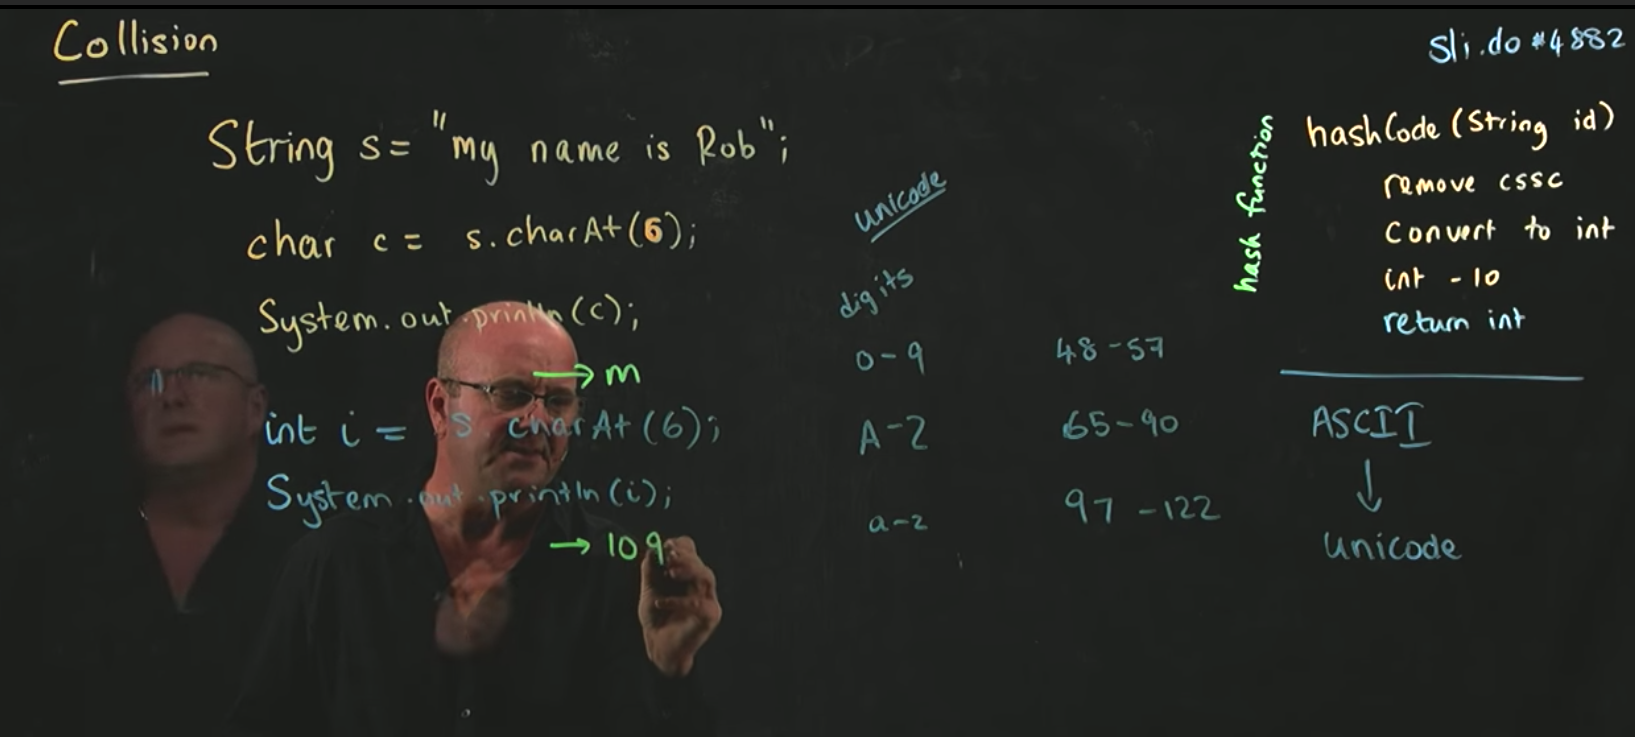 Collision
sli.do #4882
String s = "my name is Rob";
char c = s.charAt(6);
System.out.println(c);
→ m
int i = s.charAt(6);
System.out.println(i);
→ 109
unicode
digits
0-9 48-57
A-Z 65-90
a-z 97-122
hash function
hashCode (String id)
remove cssc
Convert to int
int - 10
return int
ASCII
↓
Unicode